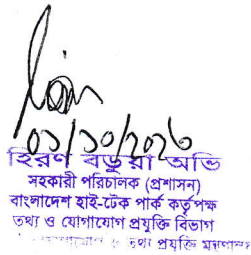 ০১/১০/২০২৩
হিরণ বড়ুয়া অভি
সহকারী পরিচালক (প্রশাসন)
বাংলাদেশ হাই-টেক পার্ক কর্তৃপক্ষ
তথ্য ও যোগাযোগ প্রযুক্তি বিভাগ
ও তথ্য প্রযুক্তি মন্ত্রণালয়